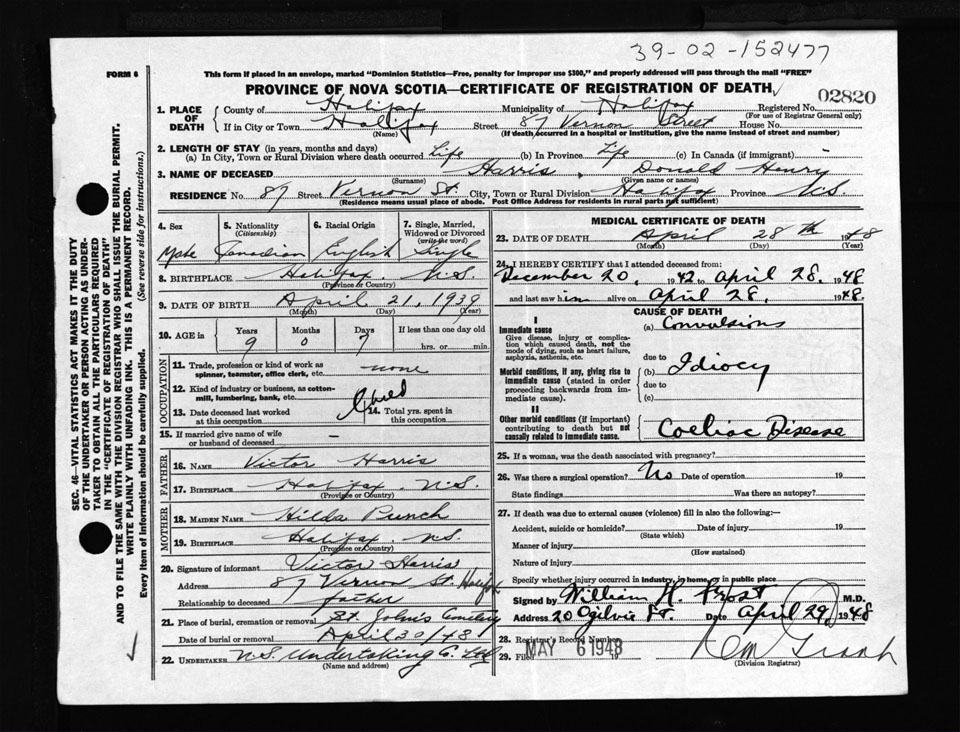 39-02-152477
FORM 6
This form if placed in an envelope, marked "Dominion Statistics—Free, penalty for improper use $300," and properly addressed will pass through the mail "FREE"
PROVINCE OF NOVA SCOTIA—CERTIFICATE OF REGISTRATION OF DEATH
02820
1. PLACE OF DEATH County of Halifax Municipality of Halifax Registered No.
(For use of Registrar General only)
If in City or Town Halifax Street 87 Vernon Street House No.
(Name) (If death occurred in a hospital or institution, give the name instead of street and number)
2. LENGTH OF STAY (in years, months and days)
(a) In City, Town or Rural Division where death occurred Life (b) In Province Life (c) In Canada (if immigrant) —
3. NAME OF DECEASED Harris, Donald Henry
(Surname) (Given name or names)
RESIDENCE No. 87 Street Vernon St. City, Town or Rural Division Halifax Province N.S.
(Residence means usual place of abode. Post Office Address for residents in rural parts not sufficient)
4. Sex 5. Nationality (Citizenship) 6. Racial Origin 7. Single, Married, Widowed or Divorced (write the word)
Male Canadian English Single
8. BIRTHPLACE Halifax. N.S.
(Province or Country)
9. DATE OF BIRTH April 21, 1939
(Month) (Day) (Year)
10. AGE in Years Months Days If less than one day old
9 0 7 hrs. or min.
OCCUPATION
11. Trade, profession or kind of work as spinner, teamster, office clerk, etc. none
12. Kind of industry or business, as cotton-mill, lumbering, bank, etc.
Child
13. Date deceased last worked at this occupation 14. Total yrs. spent in this occupation
15. If married give name of wife or husband of deceased —
FATHER
16. NAME Victor Harris
17. BIRTHPLACE Halifax. N.S.
(Province or Country)
MOTHER
18. MAIDEN NAME Hilda Punch
19. BIRTHPLACE Halifax. N.S.
(Province or Country)
20. Signature of informant Victor Harris
Address 87 Vernon St. Halifax
Relationship to deceased father
21. Place of burial, cremation or removal St. John's Cemetery
Date of burial or removal April 30/48
22. UNDERTAKER N.S. Undertaking Co. Ltd
(Name and address)
MEDICAL CERTIFICATE OF DEATH
23. DATE OF DEATH April 28th 1948
(Month) (Day) (Year)
24. I HEREBY CERTIFY that I attended deceased from:
December 20, 1942 to April 28, 1948
and last saw him alive on April 28, 1948.
CAUSE OF DEATH
I
Immediate cause (a) Convulsions
Give disease, injury or complication which caused death, not the mode of dying, such as heart failure, asphyxia, asthenia, etc.
due to
Morbid conditions, if any, giving rise to immediate cause (stated in order proceeding backwards from immediate).
(b) Idiocy
due to
(c)
II
Other morbid conditions (if important) contributing to death but not causally related to immediate cause.
Coeliac Disease
25. If a woman, was the death associated with pregnancy?
26. Was there a surgical operation? No Date of operation 19
State findings Was there an autopsy?
27. If death was due to external causes (violence) fill in also the following:—
Accident, suicide or homicide? Date of injury 19
(State which)
Manner of injury
(How sustained)
Nature of injury
Specify whether injury occurred in industry, in home, or in public place
Signed by William H. Frost M.D.
Address 20 Ogilvie St. Date April 29, 1948
28. Registrar's Record Number
29. Filed MAY 6 1948
(Division Registrar)
SEC. 46—VITAL STATISTICS ACT MAKES IT THE DUTY
OF THE UNDERTAKER OR PERSON ACTING AS UNDER-
TAKER TO OBTAIN ALL THE PARTICULARS REQUIRED
IN THE "CERTIFICATE OF REGISTRATION OF DEATH"
AND TO FILE THE SAME WITH THE DIVISION REGISTRAR WHO SHALL ISSUE THE BURIAL PERMIT.
WRITE PLAINLY WITH UNFADING INK. THIS IS A PERMANENT RECORD.
Every item of information should be carefully supplied. (See reverse side for instructions.)